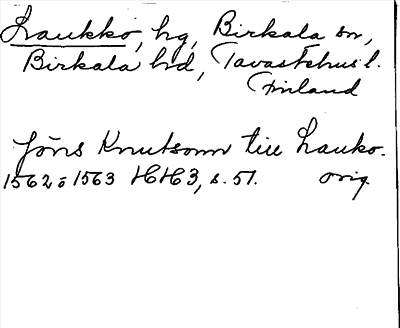 Laukko, hg, Birkala sn,
Birkala hd, Tavastehus l.
Finland
Jöns Knutsonn till Lauko.
1562 o 1563 HH3, s. 51. orig.